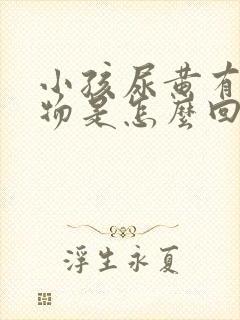 小孩尿黄有
物是怎麼回
浮生永夏